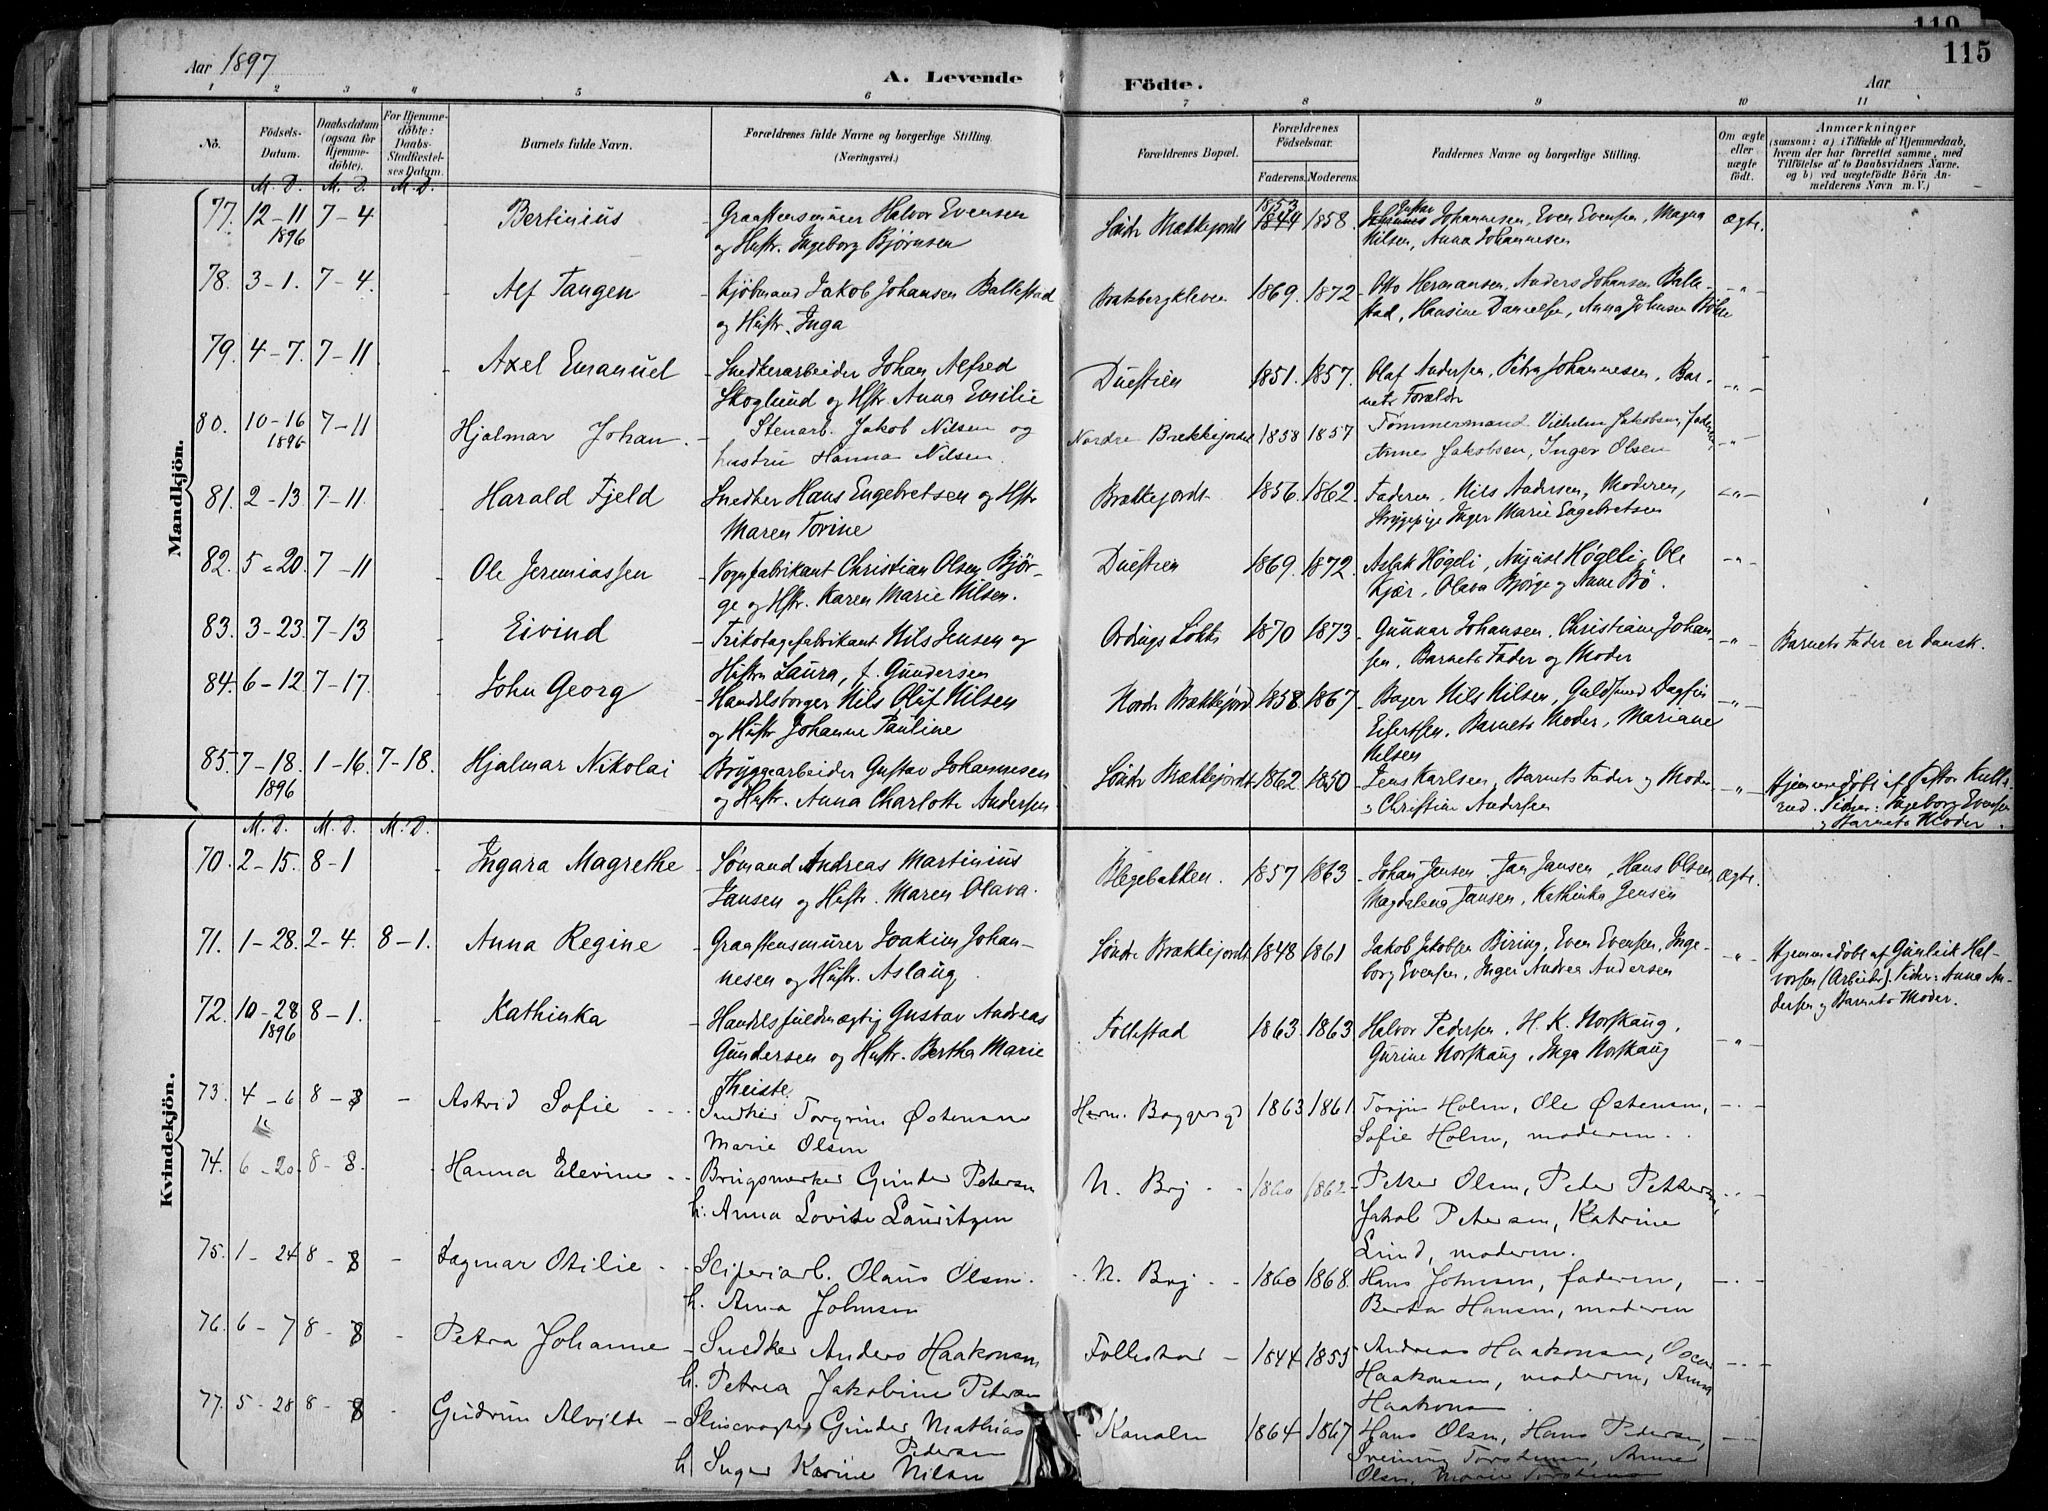 119
115
Aar 1897
A. Levende Födte.
Aar
1 2 3 4 5 6 7 8 9 10 11
No.
Födsels-Datum.
Daabsdatum (ogsaa för Hjemme-döbte).
For Hjemme-döbte: Daabs-Stadfæstel-ses Datum.
Barnets fulde Navn.
Forældrenes fulde Navne og borgerlige Stilling.
(Næringsvei.)
Forældrenes Bopæl.
Forældrenes Födselsaar.
Faderens. Moderens.
Faddernes Navne og borgerlige Stilling.
Om ægte eller uægte födt.
Anmærkninger
(saasom: a) i Tilfælde af Hjemmedaab, hvem der har forrettet samme, med Tilföielse af to Daabsvidners Navne. og b) ved uægtefödte Börn An-melderens Navn m. V.)
M. D. M. D. M. D.
Mandkjön.
77. 12-11 7-4 Bertinius - Graastensmürer Halvor Evensen Söndr Brækkejordt 1853 1858. Gustav Johannesen, Even Evensen, Magna ægte.
1896 og Hustr. Ingeborg Bjørnsen 1844 Nilsen, Anna Johannesen
78. 3-1. 7-4. Alf Tangen - Kjöbmand Jakob Johansen Ballestad 1869. 1872 - Otto Hermansen, Anders Johansen Balle- -"-
og Hustr. Inga stad, Hansine Danielsen, Anna Johnsen
79. 4-7. 7-11 Axel Emanuel - Snedkerarbeider Johan Alfred Duestien 1851. 1857. Olaf Andersen, Petra Johannesen, Bar- -"-
Skoglund og Hstr. Anna Emilie nets Forældr
80. 10-16 7-11 Hjalmar Johan. - Stenarb. Jakob Nilsen og Nordre Brækkejordet 1858 1857 Tömmermand Vilhelm Jakobsen, faderen, -"-
1896 hustru Hanna Nilsen. Anne Jakobsen, Inger Olsen
81. 2-13. 7-11. Harald Fjeld Snedker Hans Engebretsen og Hstr Brækkejordt 1856. 1862. Faderen, Nils Andersen, Moderen, -"-
Maren Torine Strygepige Inger Marie Engebretsen
82. 5-20. 7-11 Ole Jeremiassen Vognfabrikant Christian Olsen Bjør- Duestien 1869. 1872. Aslak Høgeli, Høgeli, Ole -"-
ge og Hstr. Karen Marie Nilsen. Kjær, Olava Bjørge og Anne Bø.
83. 3-23. 7-13 Eivind - Trikotagefabrikant Nils Jensen og 1870 1873 - Gunnar Johansen, Christiane Johan- -"- Barnets Fader er dansk.
Hustru Laura, f. Gundersen sen, Barnets Fader og Moder
84. 6-12 7-17. John Georg Handelsborger Nils Oluf Nilsen Nordr Brækkejord 1858. 1867 - Bager Nils Nilsen, Guldsmed Dagfin -"-
og Hustr Johanne Pauline Eilertsen, Barnets Moder, Mariane
Nilsen
85. 7-18. 1-16. 7-18. Hjalmar Nikolai Bryggearbeider Gustav Johannesen Söndr Brækkejordt 1862 1850 Jens Karlsen, Barnets Fader og Moder -"- Hjemmedöbt af
1896 og Hustr. Anna Charlotte Andersen Christian Andersen Ingeborg Evensen
og Barnets Moder.
M. D. M. D. M. D.
Kvindekjön.
70. 2-15. 8-1 Ingara Magrethe - Sømand Andreas Martinius Blegebakken. 1857 1863 - Johan Jensen, Jan Jansen, Hans Olsen, ægte.
Jansen og Hustr. Maren Olava. Magdalena Jansen, Kathinka Jensen
71. 1-28. 2-4. 8-1. Anna Regine - Graastensmürer Joakim Johan- Söndre Brækkejordt 1848 1861 Jakob Jakobsen Biring, Even Evensen, Inge- -"- Hjemmedöbt af Gunleik Hal-
nesen og Hustr. Aslaug. borg Evensen, Inger Andrea Andersen vorsen (Arbeider). Vidner: Anna An-
dersen og Barnets Moder.
72. 10-28 8-1. Kathinka - Handelsfuldmægtig Gustav Andreas Follestad 1863. 1863. Halvor Pedersen, H. K. Norskaug, -"-
1896 Gundersen og Hustr. Bertha Marie Gurine Norskaug, Inga Norskaug
Theiste.
73. 4-6 8-8 - Astrid Sofie - Snedker Torgrim Østensen Herm. Baggersgd 1863 1861 Torjus Holm, Ole Østensen, -"-
Marie Olsen Sofie Holm, moderen.
74. 6-20. 8-8. Hanna Elevine - Brugsmerker Gunder Petersen N. Brj - 1860 1862 - Peter Olsen, Peter Pettersen, -"-
h. Anna Lovise Lauritzen Jakob Petersen, Katrine
Lund, moderen.
75. 1-24 8-8 - Dagmar Otilie - Sliperiarb. Olaus Olsen. N. Brj - 1860 1868. Hans Johnsen, faderen, -"-
h. Anna Johnsen Berta Hansen, moderen
76. 6-7 8-8 - Petra Johanne - Snedker Anders Haakonsen Follestad - 1844 1855 Andreas Haakonsen, Oscar -"-
h. Petrea Jakobine Petersen Haakonsen, moderen, Anna
Haakonsen.
77. 5-28 8-8 - Gudrun Alvilde - Slusevogter Gunder Mathias Kanalen 1864 1867 Hans Olsen, Hans Pedersen, -"-
Pedersen Torstensen, Anne
h. Inger Karine Nilsen Olsen, Marie Torstensen